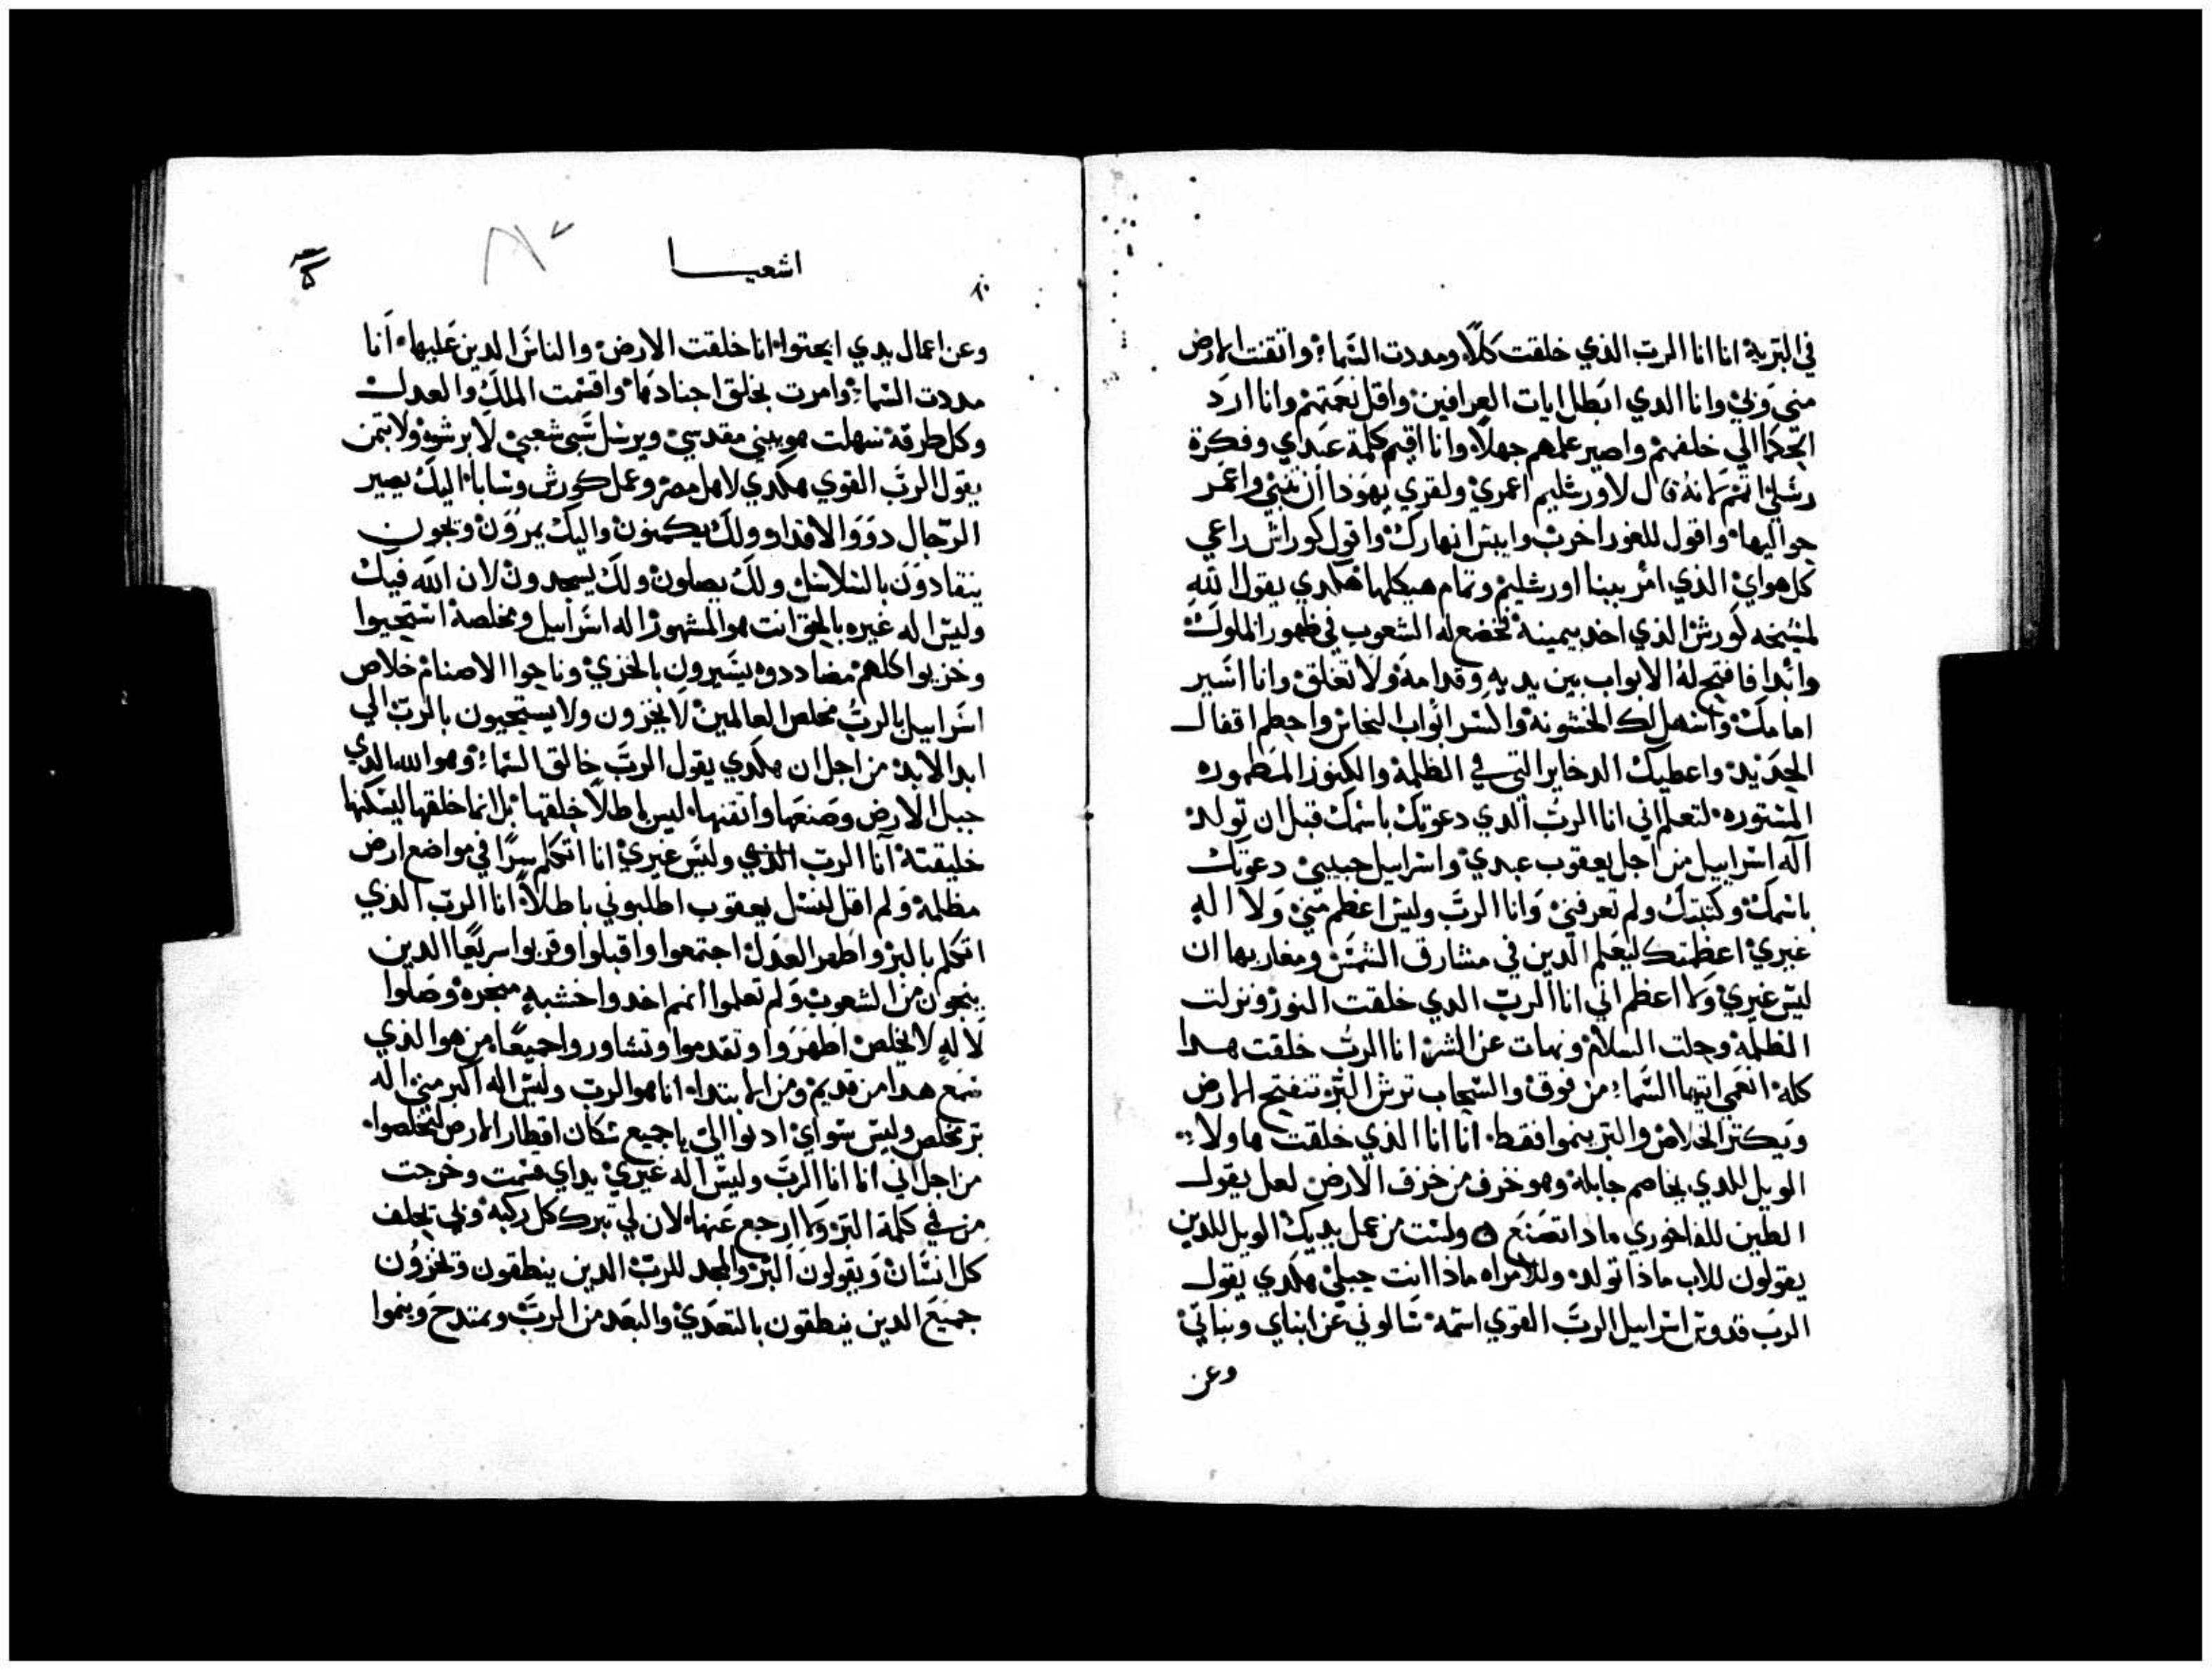 في البرية انا انا الرب الذي خلقت كلًا ومددت السماء واتقنت الارض
مني وبي وانا الدي ابطل ايات العرافين واقل نعمتهم وانا ارد
الحكما الي خلفهم واصير علمهم جهلًا وانا اقيم كلمة عبداي وفكرة
رسلي اتمم لانه قال لاورشليم اعمري ولقري يهودا ان تبني واعمر
حواليها واقول للغور اخرب وايبس انهارك واقول كوراش راعي
كل هواي الذي امر ببنا اورشليم وتمام هيكلها هكدي يقول الله
لمسيحه كورش الذي اخد بيمينه تخضع له الشعوب في ظهور الملوك
وابدا فافتح له الابواب بين يديه وقدامه ولا تغلق وانا اسير
امامك واسهل لك الخشونه واكسر ابواب النحاس واحطم اقفال
الحديد واعطيك الدخاير التي في الظلمة والكنوز المطموره
المستوره لتعلم اني انا الرب الدي دعوتك باسمك قبل ان تولد
اله اسراييل من اجل يعقوب عبدي واسراييل حبيبي دعوتك
باسمك وكنيتك ولم تعرفني وانا الرب وليس اعظم مني ولا اله
غيري اعظمتك ليعلم الدين في مشارق الشمس ومغاربها ان
ليس غيري ولا اعظم اني انا الرب الدي خلقت النور ونزلت
الظلمة وجلت السلام ونهات عن الشر انا الرب خلقت هدا
كله انعمي ايتها السماء من فوق والسحاب ترش البر تنفتح الارض
ويكتر الخلاص والبر ينموا فقط انا انا الذي خلقت هاولاء
الويل للدي يخاصم جابله وهو خزف من خزف الارض لعل يقول
الطين للفاخوري مادا تصنع ولست من عمل يديك الويل للدين
يقولون للاب ماذا تولد وللامراه ماذا انت حبلي هكدي يقول
الرب قدوس اسراييل الرب القوي اسمه سالوني عن ابناي وبناتي
وعن
اشعيا
وعن اعمال يدي ابحتوا انا خلقت الارض والناس الدين عليها انا
مددت السماء وامرت بخلق اجنادها واقسمت الملك والعدل
وكل طرقه سهلت هو يبني مقدسي ويرسل سبي شعبي لا برشوه ولا بتمن
يقول الرب القوي هكدي لاهل مصر وعمل كورش وسابا اليك يصير
الرجال دوو الاقدار ولك يكمنون واليك يمرون وتجون
ينقادون بالسلاسل ولك يصلون ولك يسجدون لان الله فيك
وليس اله غيره بالحق انت هو المشهور اله اسراييل ومخلصه استحيوا
وخزيوا كلهم مضاددوه يسيرون بالخزي وناحوا الاصنام خلاص
اسراييل بالرب مخلص العالمين لا يخزون ولا يستحيون بالرب الي
ابد الابد من اجل ان هكدي يقول الرب خالق السماء وهو الله الدي
جبل الارض وصنعها واتقنها ليس باطلًا خلقها بل انما خلقها ليسكنها
خليقته انا الرب الذي وليس غيري انا اتكلم سرًا في مواضع ارض
مظلمة ولم اقل لنسل يعقوب اطلبوني باطلًا انا الرب الذي
اتكلم بالبر واظهر العدل اجتمعوا واقبلوا وقربوا سريعًا الدين
ينجون من الشعوب ولم تعلموا انهم اخدوا خشبه منجره وصلوا
لاله لا يخلص اظهروا وتقدموا وتشاوروا جميعًا من هو الذي
سمع هدا من قديم ومن الابتدا انا هو الرب وليس اله اكبر مني اله
بر مخلص وليس سواي ادنوا الي يا جميع سكان اقطار الارض لتخلصوا
من اجل اني انا انا الرب وليس اله غيري بداي قسمت وخرجت
من في كلمة البر ولا ارجع عنها لان لي تبرك كل ركبه وبي يحلف
كل انسان ويقولون البر والمجد للرب الدين ينطقون وتخزون
جميع الدين ينطقون بالتعدي والبعد من الرب ويمتدح وينموا